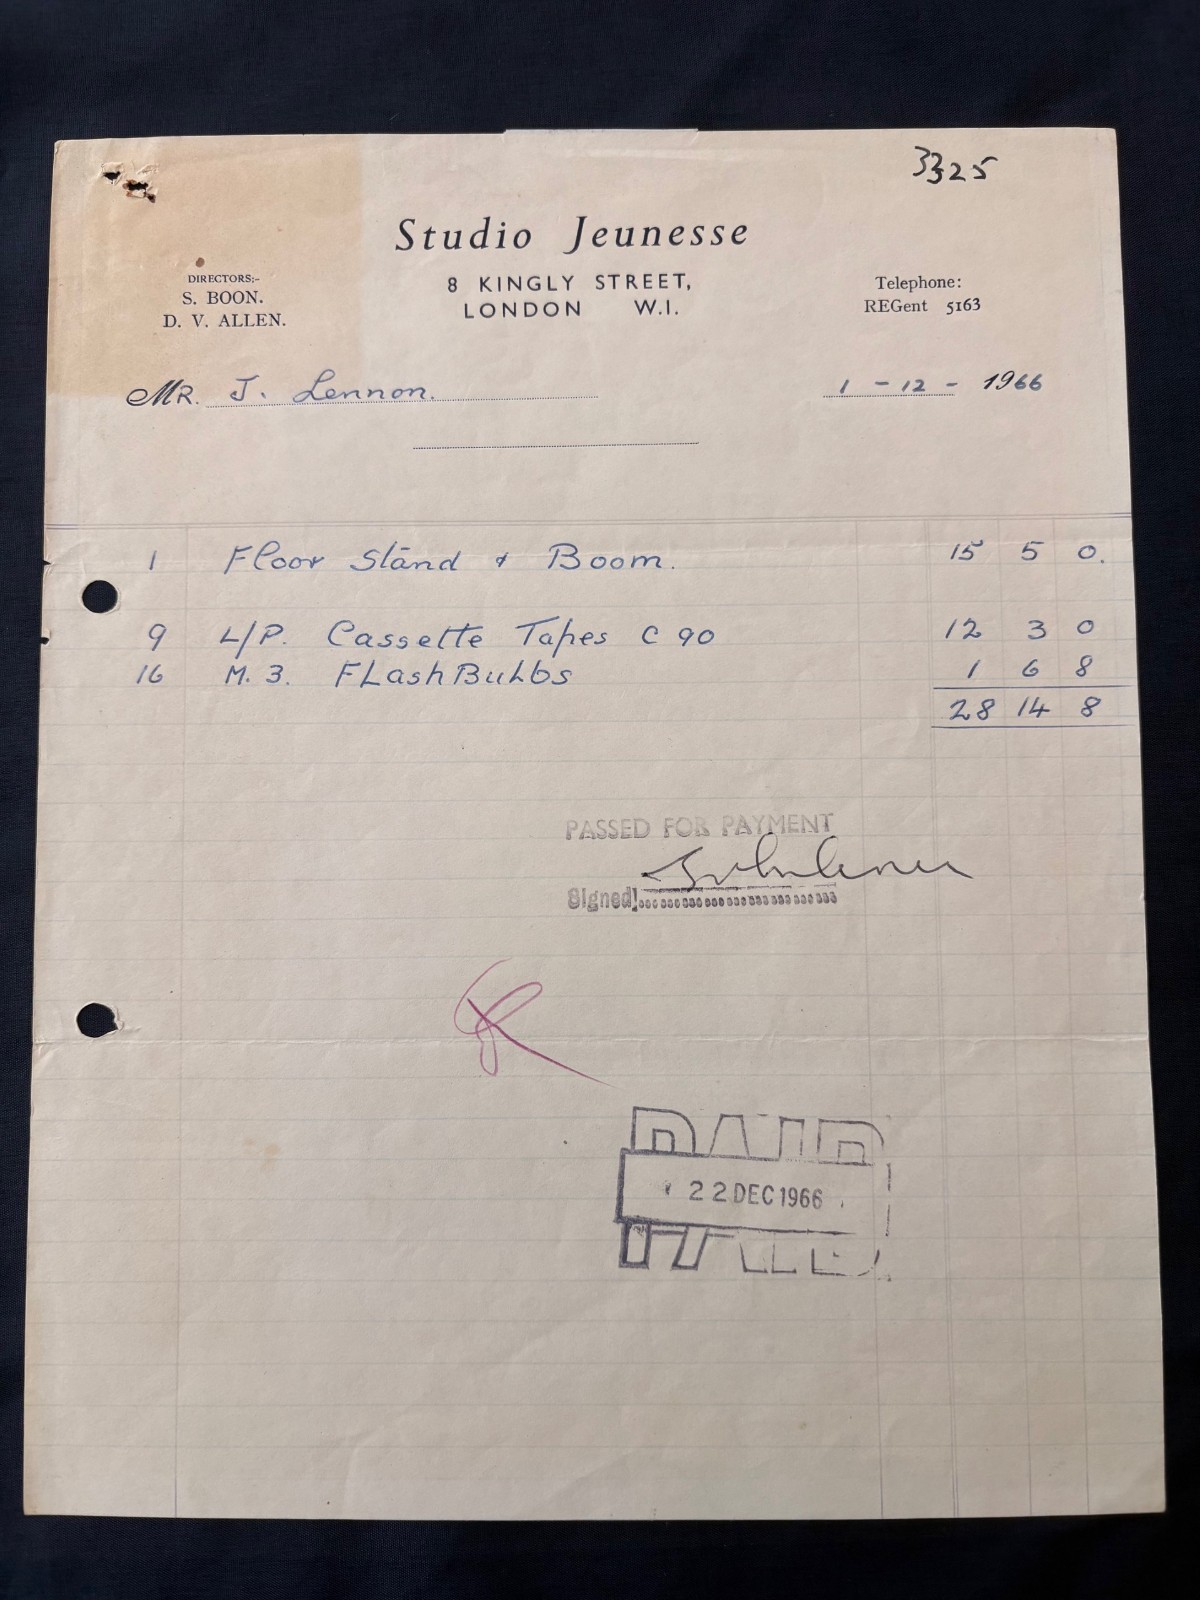 3325
Studio Jeunesse
DIRECTORS:-
S. BOON.
D. V. ALLEN.
8 KINGLY STREET,
LONDON W.1.
Telephone:
REGent 5163
MR. J. Lennon. 1 - 12 - 1966
1 Floor Stand & Boom. 15 5 0.
9 L/P. Cassette Tapes C 90 12 3 0
16 M. 3. FLash Bulbs 1 6 8
28 14 8
PASSED FOR PAYMENT
Signed:
PAID
22 DEC 1966